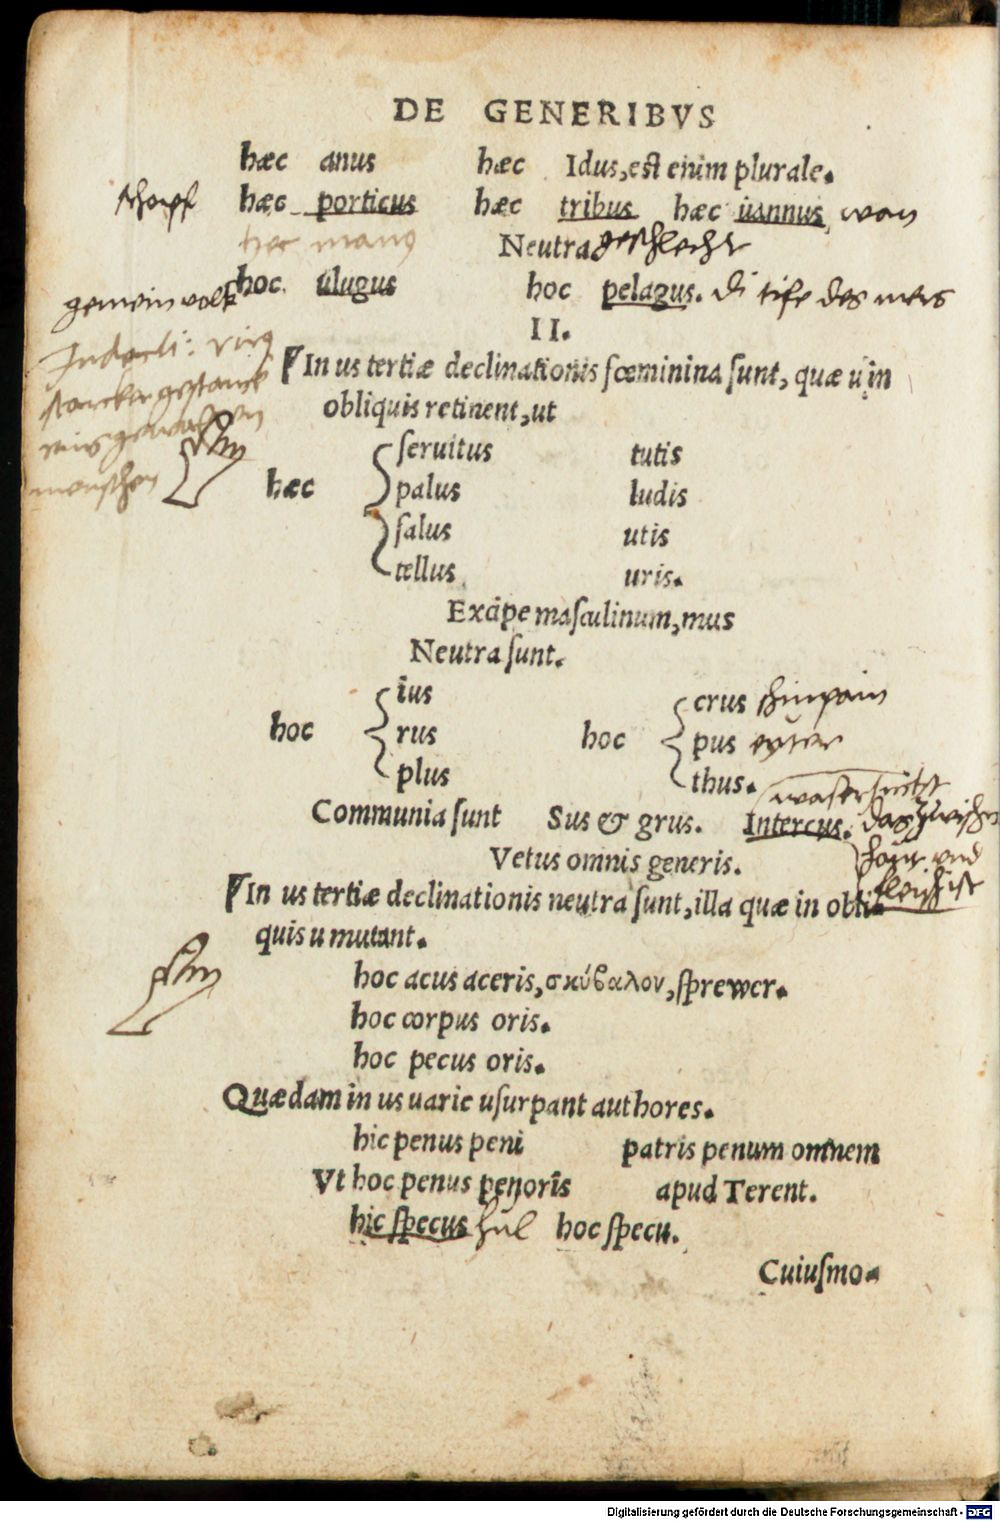 DE GENERIBVS
hæc anus hæc Idus, est enim plurale.
schopf hæc porticus hæc tribus hæc uannus, wan
hec manus Neutra geschlecht
gemein volk hoc ulugus hoc pelagus. di tife des mers
II.
In us tertiæ declinationis fœminina sunt, quæ u in
obliquis retinent, ut
hæc
seruitus tutis
palus ludis
salus utis
tellus uris.
Excipe masculinum, mus
Neutra sunt.
hoc
ius
rus
plus
hoc
crus schinpain
pus eyter
thus.
Communia sunt Sus & grus. Intercus. wasersucht das zwischen
haut und
fleisch ist
Vetus omnis generis.
In us tertiæ declinationis neutra sunt, illa quæ in obli-
quis u mutant.
hoc acus aceris, σκύβαλον, sprewer.
hoc corpus oris.
hoc pecus oris.
Quædam in us uarie usurpant authores.
hic penus peni patris penum omnem
Vt hoc penus penoris apud Terent.
hic specus hül hoc specu.
Cuiusmo-
menschen
Digitalisierung gefördert durch die Deutsche Forschungsgemeinschaft - DFG